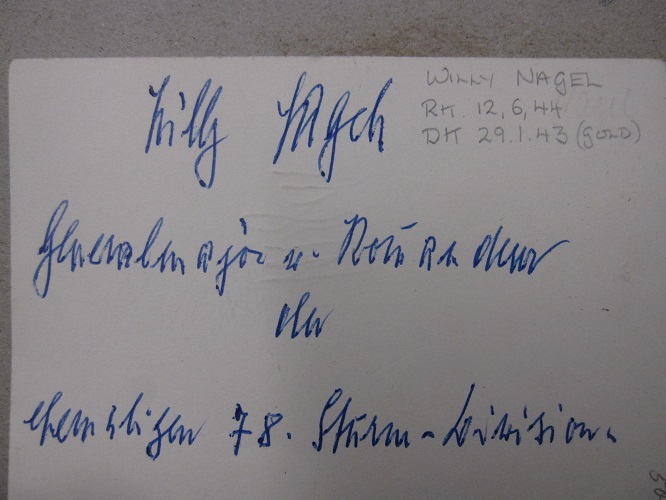 Willy Nagel
WILLY NAGEL
RK. 12,6,44
DK 29.1.43 (GOLD)
Generalmajor u. Kommandeur
der
ehemaligen 78. Sturm-Division.